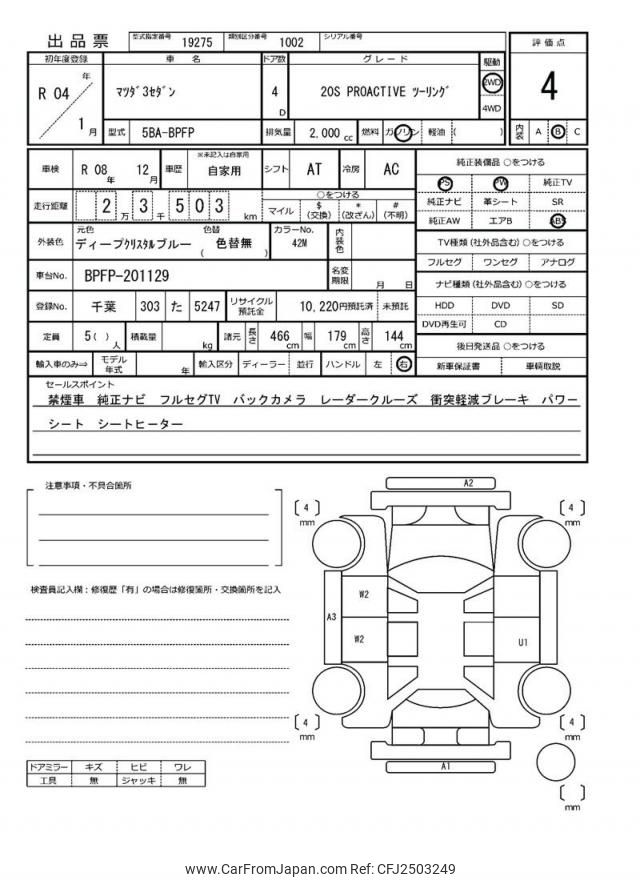 出品票 型式指定番号 19275 類別区分番号 1002 シリアル番号
評価点
初年度登録 車 名 ドア数 グレード 駆動
R 04 年 1 月 マツダ3セダン 4 D 20S PROACTIVE ツーリング 2WD 4WD
4
型式 5BA-BPFP 排気量 2,000 cc 燃料 ガソリン 軽油 ( )
内装 A B C
車検 R 08 年 12 月 車歴 ※未記入は自家用 自家用 シフト AT 冷房 AC
純正装備品 ○をつける
PS PW 純正TV
純正ナビ 革シート SR
純正AW エアB ABS
走行距離 2 万 3 千 5 0 3 km
○をつける
マイル $ (交換) * (改ざん) # (不明)
外装色 元色 ディープクリスタルブルー 色替 ( 色替無 ) カラーNo. 42M 内装色
TV種類 (社外品含む) ○をつける
フルセグ ワンセグ アナログ
車台No. BPFP-201129 名変期限 月 日
ナビ種類 (社外品含む) ○をつける
HDD DVD SD
DVD再生可 CD
登録No. 千葉 303 た 5247 リサイクル預託金 10,220円預託済 未預託
定員 5( ) 人 積載量 kg 諸元 長さ 466 cm 幅 179 cm 高さ 144 cm
後日発送品 ○をつける
新車保証書 車輌取説
輸入車のみ⇒ モデル年式 年 輸入区分 ディーラー 並行 ハンドル 左 右
セールスポイント
禁煙車 純正ナビ フルセグTV バックカメラ レーダークルーズ 衝突軽減ブレーキ パワー
シート シートヒーター
注意事項・不具合箇所
検査員記入欄：修復歴「有」の場合は修復箇所・交換箇所を記入
A2
4 mm
4 mm
W2
A3
W2
U1
4 mm
4 mm
A1
mm
ドアミラー キズ ヒビ ワレ
工具 無 ジャッキ 無
www.CarFromJapan.com Ref: CFJ2503249